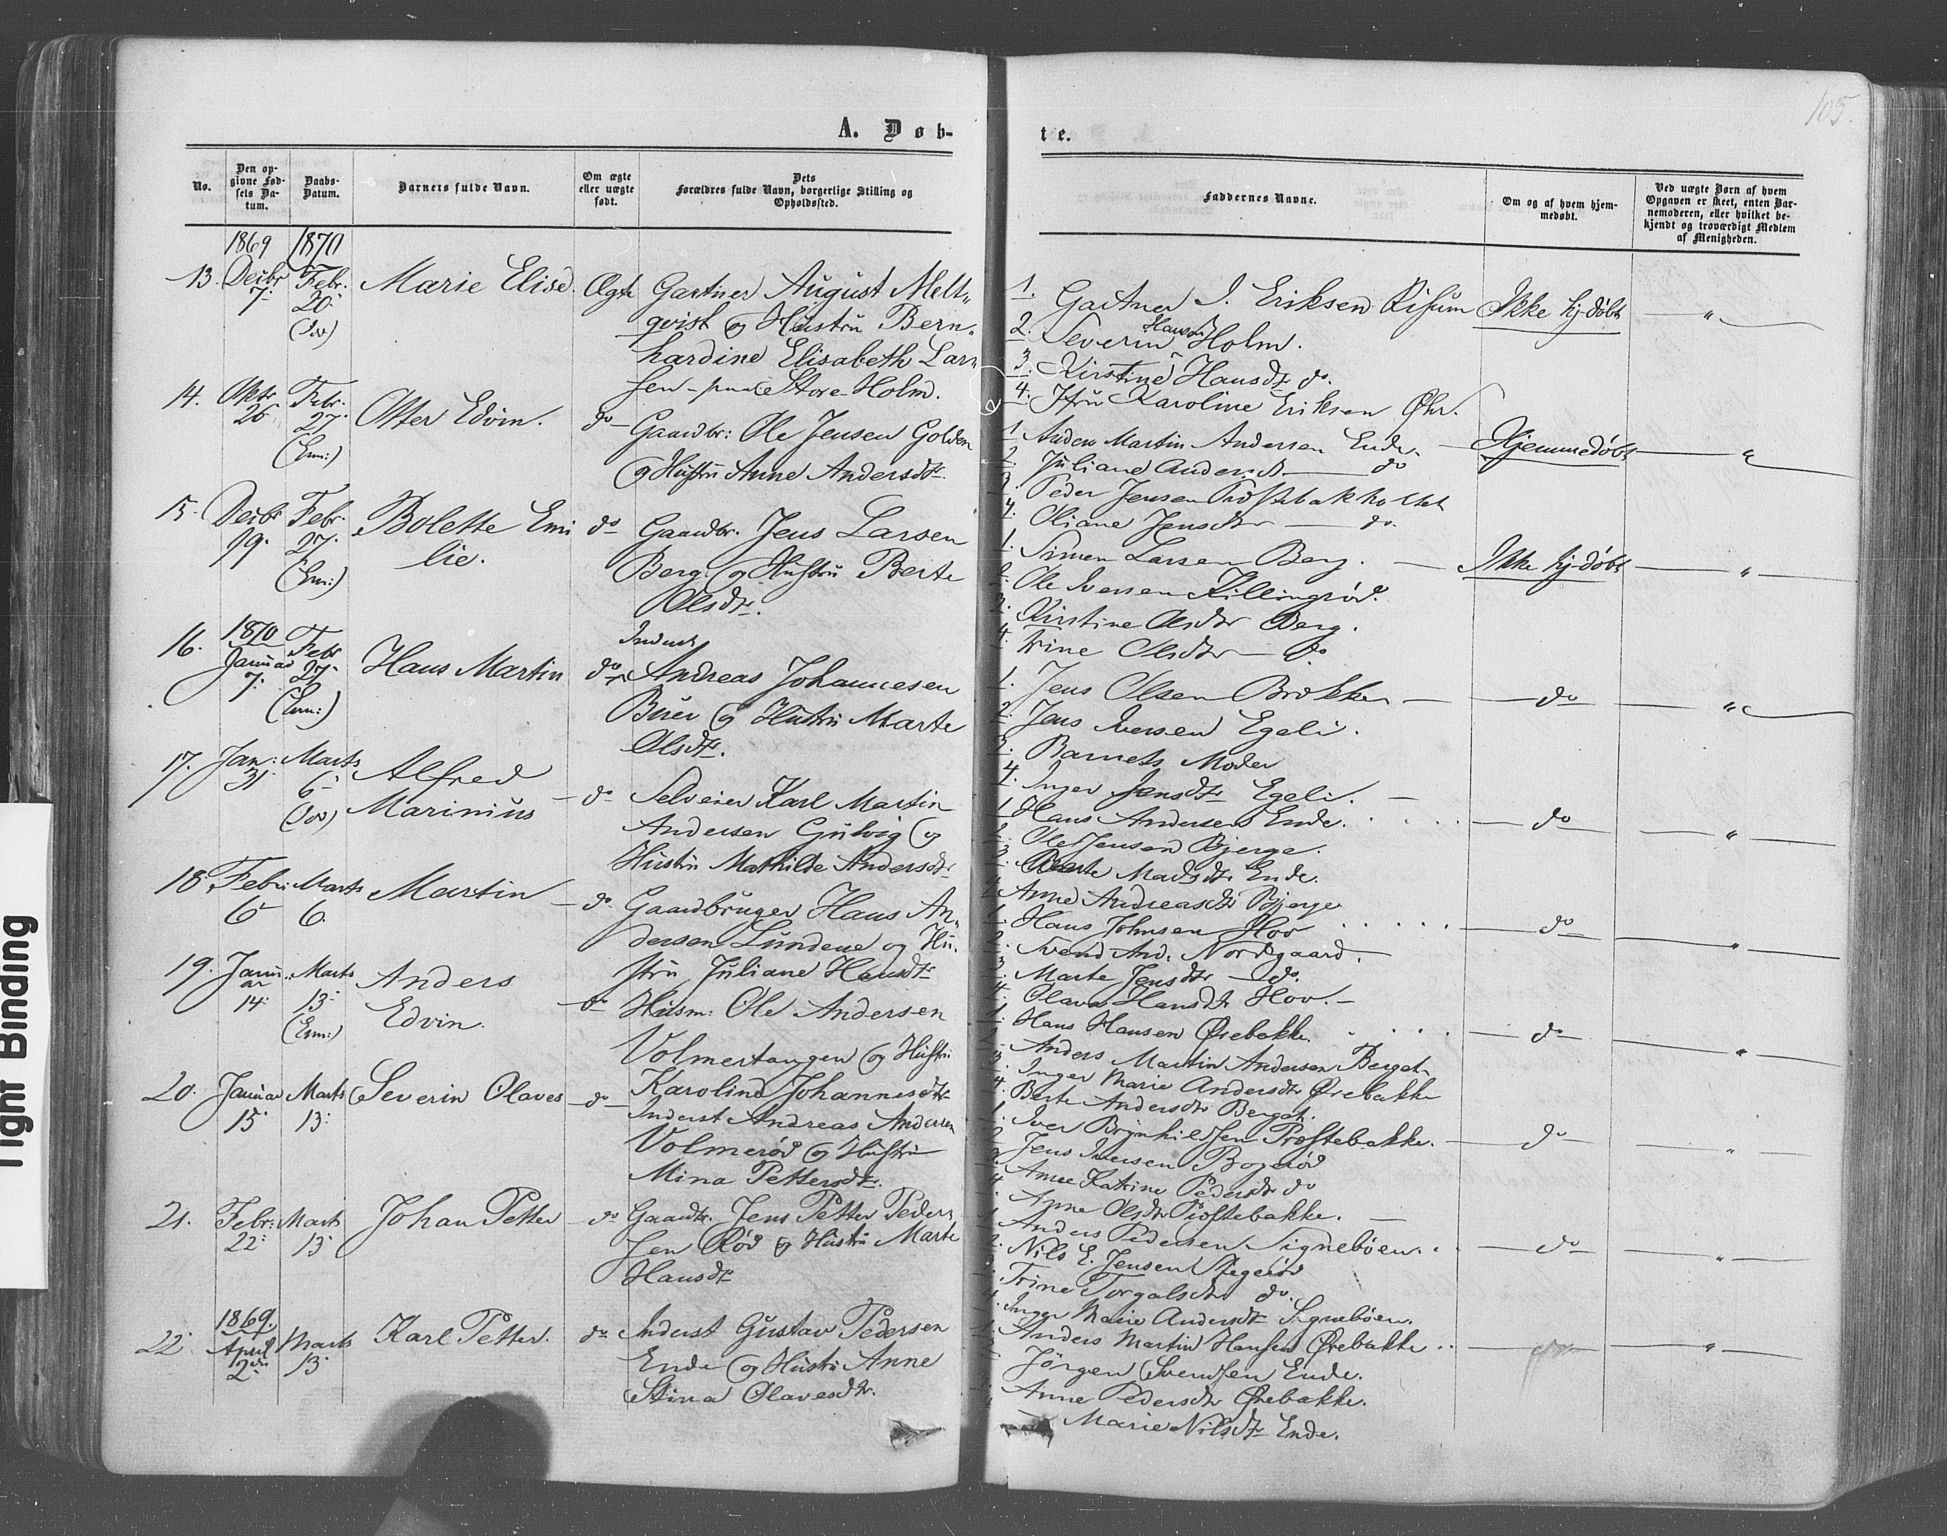 105.
A. Døb-
te.
No.
Den op-
givne Fød-
sels Da-
tum.
Daabs-
Datum.
Barnets fulde Navn.
Om ægte
eller uægte
født.
Dets
Forældres fulde Navn, borgerlige Stilling og
Opholdssted.
Faddernes Navne.
Om og af hvem hjem-
medøbt.
Ved uægte Børn af hvem
Opgaven er skeet, enten Bar-
nemoderen, eller hvilket be-
kjendt og troværdigt Medlem
af Menigheden.
1869 1870
13. Decbr Febr. Marie Elise. Ægte Gartner August Mell-
7. 20
qvist og Hustru Bern-
hardine Elisabeth Lar-
sen Store-Holm.
1. Gartner J. Eriksen Risum Ikke hj-døbt "
2. Severin Hansen Holm.
3. Kirstine Hansdtr do.
4. Fru Karoline Eriksen Øhr.
14. Oktr Febr. Otter Edvin. do Gaardbr: Ole Jensen Golden
26 27. (Enn:)
og Hustru Anne Andersdtr.
1. Anders Martin Andersen Ende. Hjemmedøbt "
2. Juliane Andersdr do
3. Peder Jensen Præstebakholtet
4. Oliane Jensdtr do.
15. Decbr Febr. Bolette Emi do Gaardbr. Jens Larsen
19. 27. (Enn:) lie.
Berg og Hustru Berte
Olsdtr.
1. Simen Larsen Berg. Ikke hj-døbt "
2. Ole Iversen Killingrød.
3. Kirstine Olsdtr Berg.
4. Trine Olsdtr do
1870
16. Januar Febr Hans Martin do Inderst Andreas Johannesen
7. 27. (Enn:)
Buer og Hustru Marte
Olsdtr.
1. Jens Olsen Brække do "
2. Jens Iversen Egeli.
3. Barnets Moder
4. Inger Jensdtr Egeli.
17. Jan: Marts Alfred
31. 6
Marinius do Selveier Karl Martin
Andersen Gulvig og
Hustru Mathilde Andersdtr
1 Hans Andersen Ende. do "
2. Ole Jensen Bjerge.
3. Berte Madsdtr Ende.
4. Anne Andreasdtr Bjerge
18. Febr: Marts Martin do. Gaardbruger Hans An-
6 6.
dersen Lundene og Hu-
stru Juliane Hansdtr
1. Hans Johnsen Hov do "
2. Svend And. Nordgaard.
3. Marte Jensdtr do.
4. Olava Hansdtr Hov.
19. Janu- Marts Anders
ar
14. 13. (Enn:)
Edvin. do Husm: Ole Andersen
Volmertangen og Hustru
Karoline Johannesdtr
1. Hans Hansen Ørebakke. do "
2. Anders Martin Andersen Berget
3. Inger Marie Andersdtr Ørebakke
4. Berte Andersdtr Berget.
20. Januar Marts Severin Olaves do Inderst Andreas Andersen
15 13.
Volmerød og Hustru
Mina Pettersdtr.
1. Iver Brynhildsen Præstebakke. do "
2. Jens Iversen Bogerød
3. Anne Katrine Pedersdtr do
4. Anne Olsdtr Præstebakke.
21. Febr: Marts Johan Petter do Gaardbr. Jens Petter Peder-
22. 13
sen Rød og Hustru Marte
Hansdtr
1. Anders Pedersen Signebøen. do "
2. Nils E. Jensen
3. Trine Torgalsdtr do.
4. Inger Marie Andersdtr Signebøen.
1869.
22. April Marts Karl Petter. do Inderst Gustav Pedersen
2den 13
Ende og Hustru Anne
Stina Olavesdtr.
1. Anders Martin Hansen Ørebakke "
Jørgen Svendsen Ende.
Anne Pedersdtr Ørebakke.
Marie Nilsdtr Ende.
Tight Binding